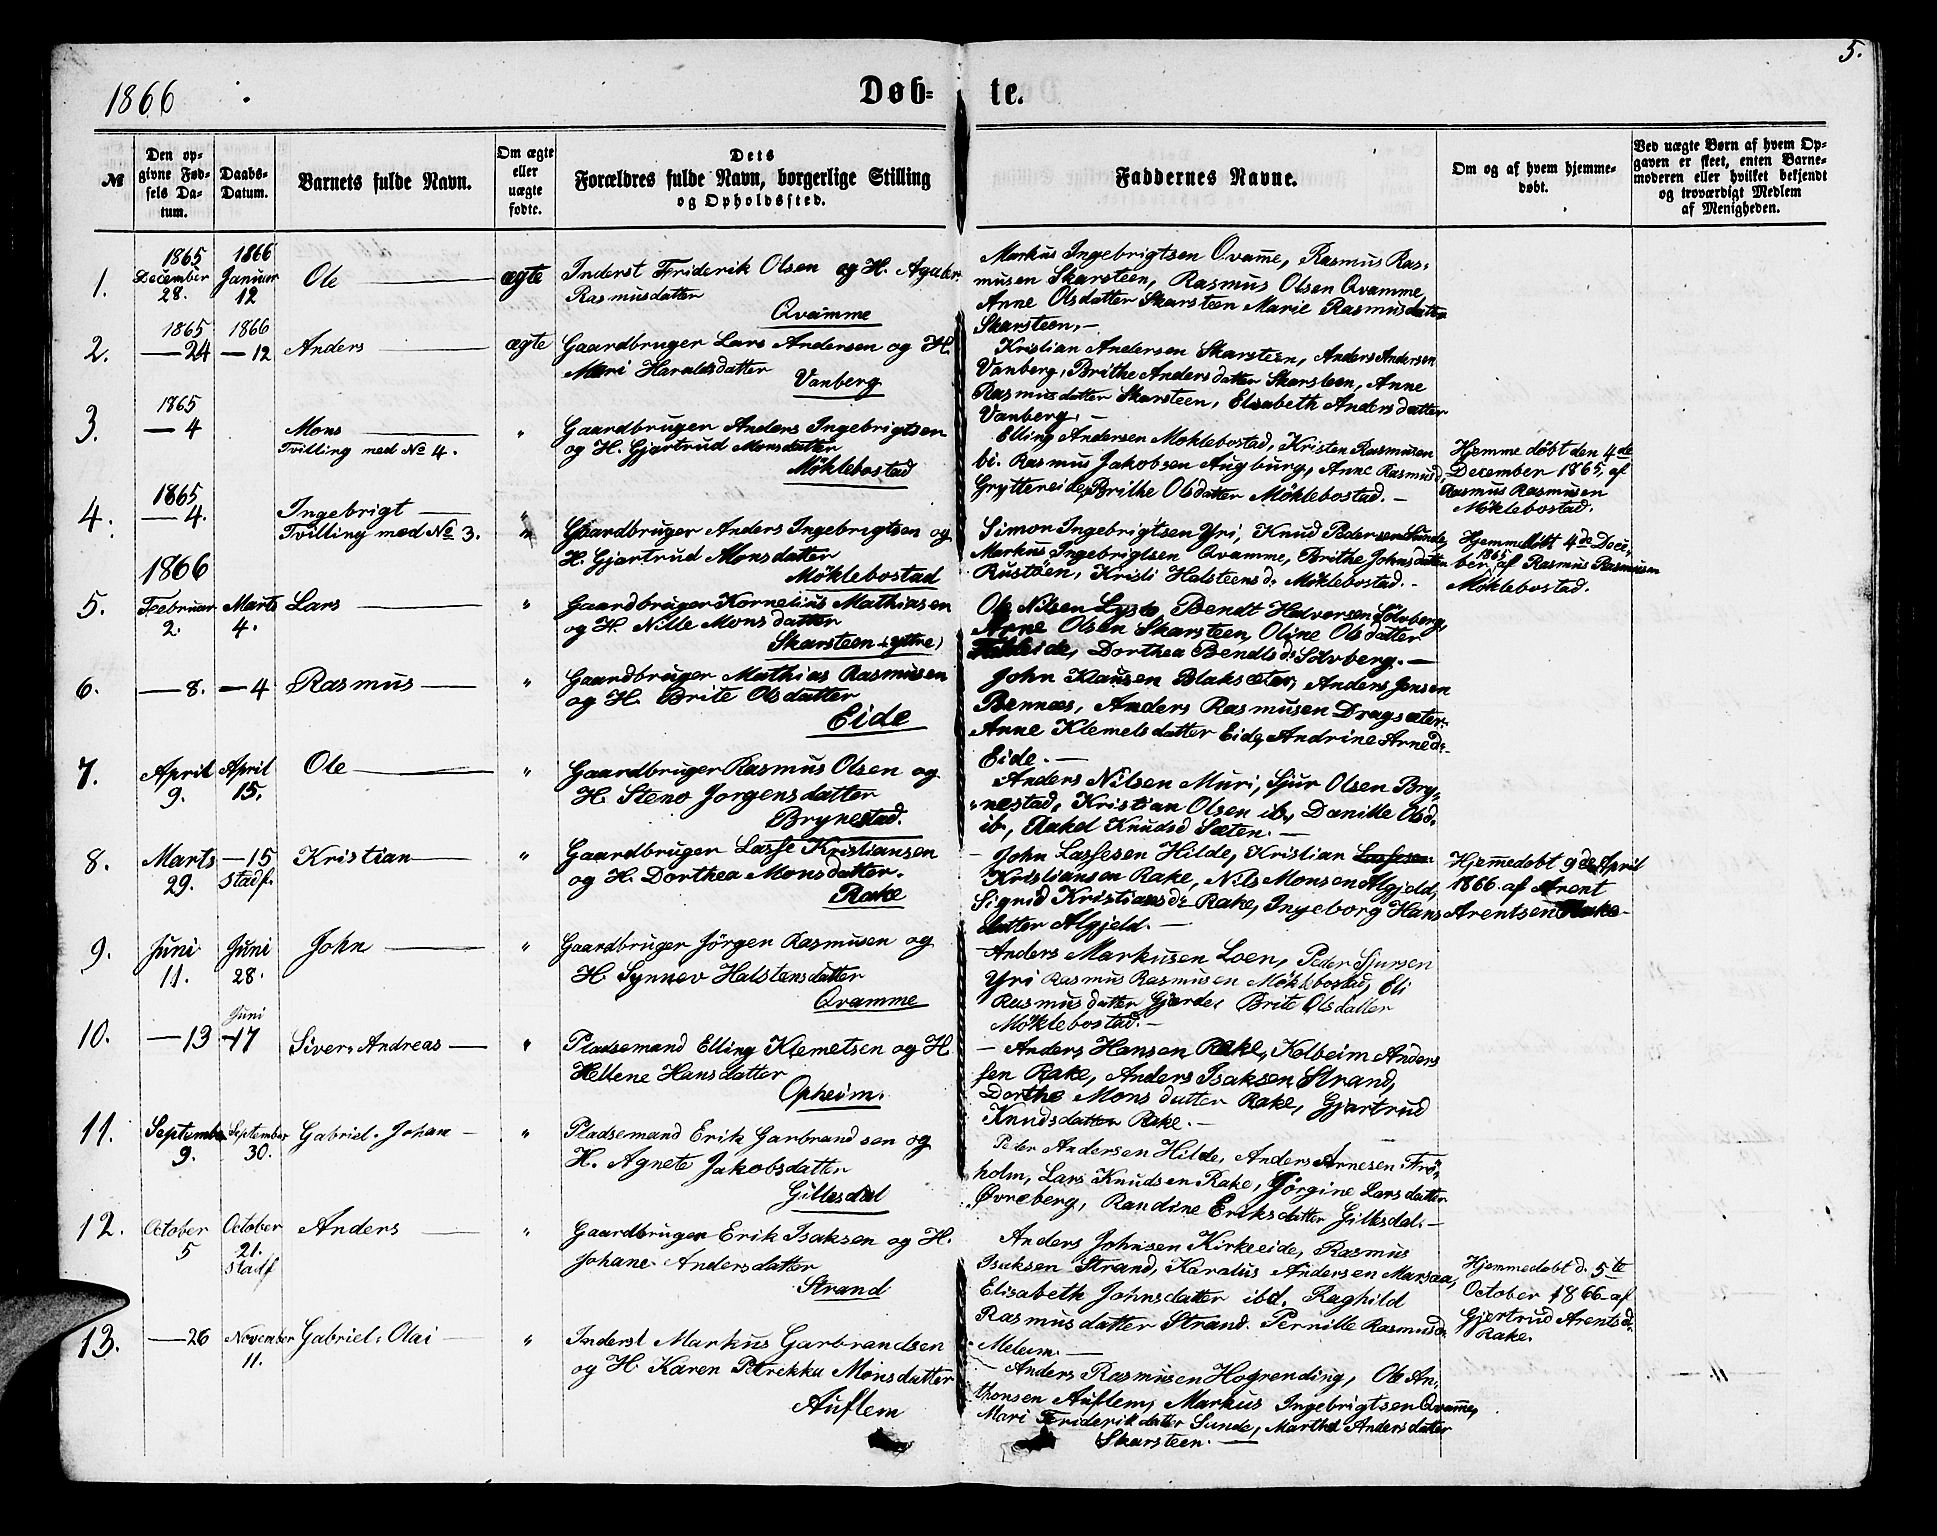 5.
1866
Døb- te.
№
Den op-
givne Fød-
sels Da-
tum.
Daabs-
Datum.
Barnets fulde Navn.
Om ægte
eller
uægte
fødte.
Dets
Forældres fulde Navn, borgerlige Stilling
og Opholdssted.
Faddernes Navne.
Om og af hvem hjemme-
døbt.
Ved uægte Børn af hvem Op-
gaven er skeet, enten Barne-
moderen eller hvilket bekjendt
og troværdigt Medlem
af Menigheden.
1.
1865
December
28.
1866
Januar
12
Ole
ægte
Inderst Friderik Olsen og H. Agate
Rasmusdatter
Qvamme
Markus Ingebrigtsen Qvamme, Rasmus Ras-
musen Skarsteen, Rasmus Olsen Qvamme,
Anne Olsdatter Skarsteen Marie Rasmusdatter
Skarsteen. —
2.
1865
— 24
1866
— 12
Anders
ægte
Gaardbruger Lars Andersen og H.
Mari Haraldsdatter
Vanberg
Kristian Andersen Skarsteen, Anders Andersen
Vanberg, Brithe Andersdatter Skarsteen, Anne
Rasmusdatter Skarsteen, Elisabeth Andersdatter
Vanberg. —
3.
1865
— 4
Mons
Tvilling med № 4.
"
Gaardbruger Anders Ingebrigtsen
og H. Gjartrud Monsdatter
Møklebostad
Elling Andersen Moklebostad, Kristen Rasmusen
bi. Rasmus Jakobsen Augburg, Anne Rasmusd
Gryttereide, Brithe Olsdatter Møklebostad. —
Hjemme døbt den 4de
December 1865, af
Rasmus Rasmusen
Møklebostad.
4.
1865
— 4.
Ingebrigt
Tvilling med № 3.
"
Gaardbruger Anders Ingebrigtsen og
H. Gjartrud Monsdatter
Møklebostad
Simon Ingebrigtsen Yri, Knud Pedersen Sunde,
Markus Ingebrigtsen Qvamme, Brithe Johnsdatter
Rustøen, Kristi Halsteensd. Møklebostad. —
Hjemmedøbt 4de Decem-
ber 1865 af Rasmus Rasmusen
Møklebostad.
1866
5.
Februar
2.
Marts
4.
Lars
"
Gaardbruger Kornelius Mathiasen
og H. Nille Monsdatter
Skarsteen (yttre)
Ole Nilsen Lysto, Bendt Halvorsen Solvberg,
Arne Olsen Skarsteen, Oline Olsdatter
Dorthea Bendtsd. Solvberg. —
6.
— 8.
— 4
Rasmus
"
Gaardbruger Mathias Rasmusen
og H. Brite Olsdatter
Eide
John Klausen Blaksæter, Anders Jonsen
Bennæs, Anders Rasmusen Dragsæter.
Anne Klemetsdatter Eide, Andrine Arned-
Eide. —
7.
April
9.
April
15.
Ole
"
Gaardbruger Rasmus Olsen og
H. Steno Jorgensdatter
Brynestad.
Anders Nilsen Muri, Sjur Olsen Bry-
nestad, Kristian Olsen ib, Danille Olsd.
ib, Rakel Knudsd Sæten. —
8.
Marts
29.
— 15
Stadf.
Kristian
"
Gaardbruger Lasse Kristiansen
og H. Dorthea Monsdatter.
Rake
— John Lassesen Hilde, Kristian Lassesen
Kristiansen Rake, Nils Monsen Algjeld,
Sigrid Kristiansd. Rake, Ingeborg Hans
datter Algjeld. —
Hjemmedøbt 9de April
1866 af Arent
Arentsen Rake
9.
Juni
11.
Juni
28.
John
"
Gaardbruger Jörgen Rasmusen og
H Synnev Halstensdatter
Qvamme
— Anders Markusen Loen, Peder Sjursen
Yri Rasmus Rasmusen Møklebostad, Eli
Rasmusdatter Gjerde, Brite Olsdatter
Møklebostad. —
10.
— 13
Juni
— 17
Siver, Andreas
"
Pladsemand Elling Klemetsen og H
Hellene Hansdatter
Opheim.
— Anders Hansen Rake, Kolbeim Anders
sen Rake, Anders Isaksen Strand,
Dorthe Mons datter Rake, Gjartrud
Knudsdatter Rake. —
11.
September
9.
September
30.
Gabriel. Johan
"
Pladsemand Erik Garbrandsen og
H. Agnete Jakobsdatter
Gillesdal
Peder Andersen Hilde, Anders Arnesen Frö-
holm, Lars Knudsen Rake, Jörgine Larsdatter
Øvreberg, Randine Eriksdatter Gillesdal. —
12.
October
5
October
21.
Stadf
Anders
"
Gaardbruger Erik Isaksen og H.
Johane Andersdatter
Strand
Anders Johnsen Kirkeeide, Rasmus
Isaksen Strand, Karalus Andersen Marsaa,
Elisabeth Johnsdatter ibd. Raghild
Rasmusdatter Strand. Pernille Rasmusd.
Meleim. —
Hjemmedøbt d. 5te
October 1866 af
Gjertrud Arentsd.
Rake.
13.
— 26
November
11.
Gabriel. Olai
"
Inderst Markus Garbrandsen
og H. Karen Petrekka Monsdatter
Auflem
— Anders Rasmusen Hogrending, Ole An-
thonsen Auflem, Markus Ingebrigtsen Qvamme,
Mari Friderikdatter Sunde, Marthe Andersdatter
Skarsteen. —